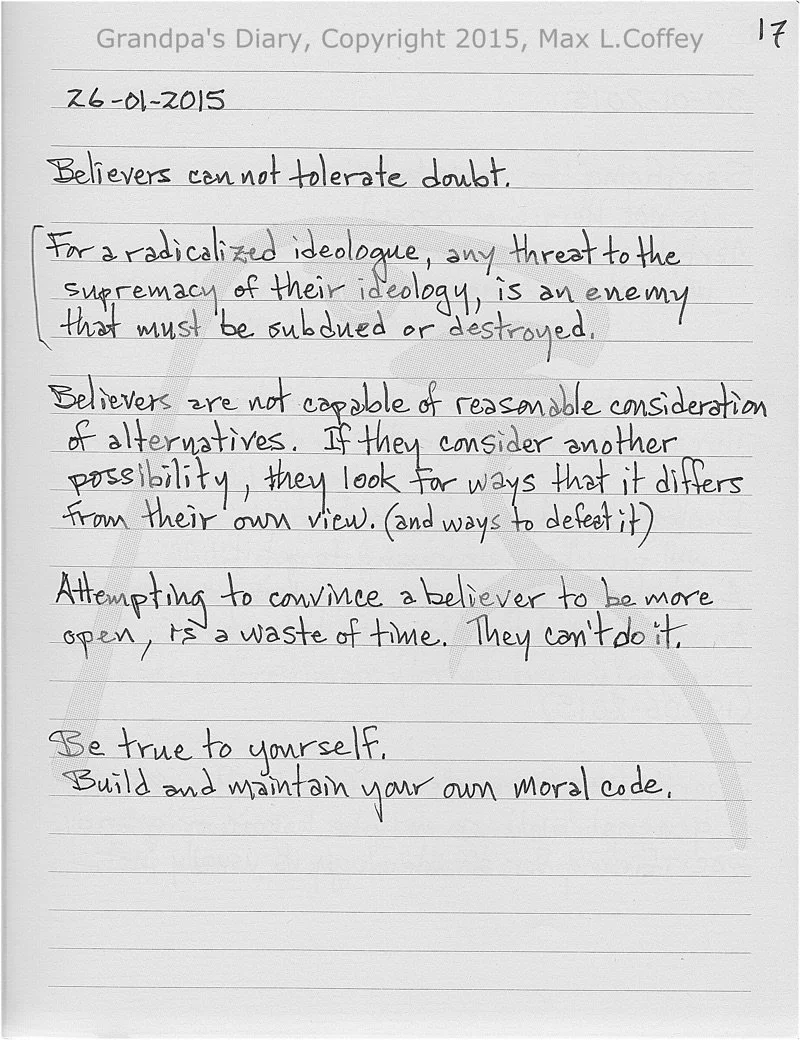 Grandpa's Diary, Copyright 2015, Max L.Coffey
17
26-01-2015
Believers can not tolerate doubt.
For a radicalized ideologue, any threat to the
supremacy of their ideology, is an enemy
that must be subdued or destroyed.
Believers are not capable of reasonable consideration
of alternatives. If they consider another
possibility, they look for ways that it differs
from their own view. (and ways to defeat it)
Attempting to convince a believer to be more
open, is a waste of time. They can't do it.
Be true to yourself.
Build and maintain your own moral code.